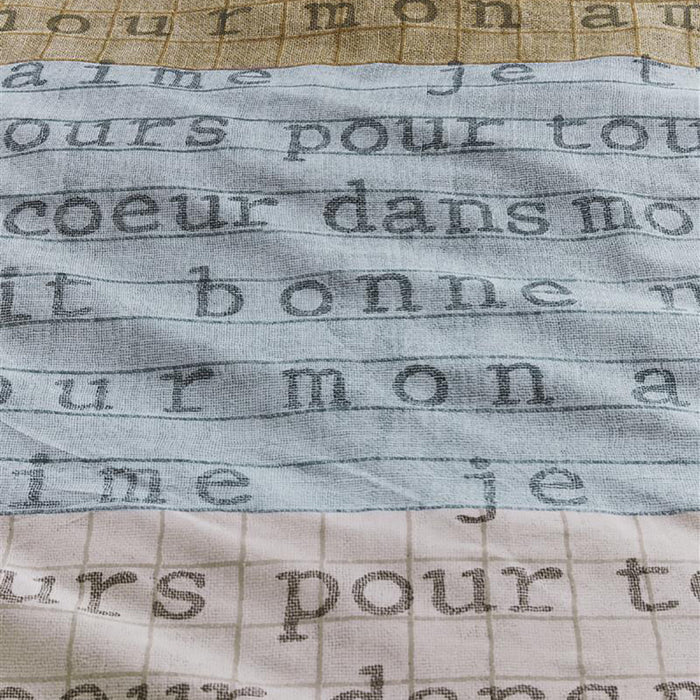 our mon am
aime je t
ours pour tou
coeur dans mo
it bonne n
our mon a
ime je
urs pour to
oeur dans m